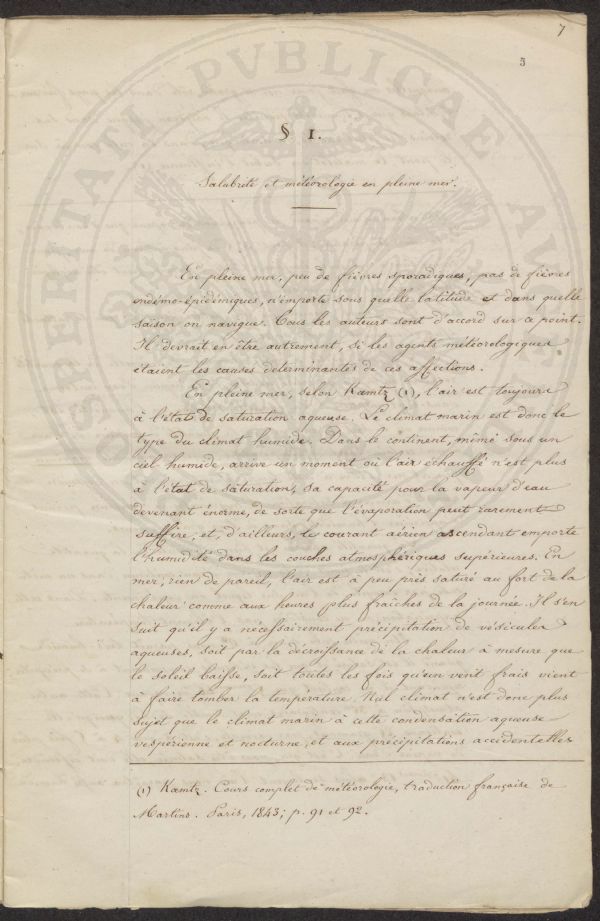 7
5
§ 1.
Salubrité et météorologie en pleine mer.
En pleine mer, peu de fièvres sporadiques, pas de fièvres
endémo-épidémiques, n'importe sous quelle latitude et dans quelle
saison on navigue. Tous les auteurs sont d'accord sur ce point.
Il devrait en être autrement, si les agents météorologiques
étaient les causes déterminantes de ces affections.
En pleine mer, selon Kamtz (1), l'air est toujours
à l'état de saturation aqueuse. Le climat marin est donc le
type du climat humide. Dans le continent, même sous un
ciel humide, arrive un moment où l'air échauffé n'est plus
à l'état de saturation, sa capacité pour la vapeur d'eau
devenant énorme, de sorte que l'évaporation peut rarement
suffire; et, d'ailleurs, le courant aérien ascendant emporte
l'humidité dans les couches atmosphériques supérieures. En
mer, rien de pareil, l'air est à peu près saturé au fort de la
chaleur comme aux heures plus fraîches de la journée. Il s'en
suit qu'il y a nécessairement précipitation de vésicules
aqueuses, soit par la décroissance de la chaleur à mesure que
le soleil baisse, soit toutes les fois qu'un vent frais vient
à faire tomber la température. Nul climat n'est donc plus
sujet que le climat marin à cette condensation aqueuse
vespérienne et nocturne, et aux précipitations accidentelles
(1) Kamtz. Cours complet de météorologie, traduction française de
Martins. Paris, 1843; p. 91 et 92.
PROSPERITATI PVBLICAE AVG